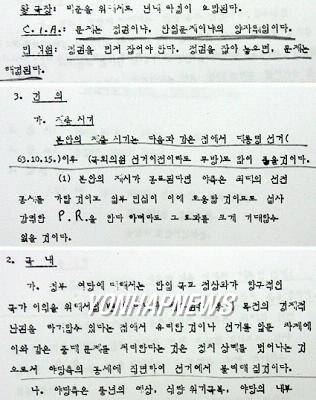 황국장: 비준을 위해서도 년내 타결이 요망된다.
C.I.A.: 문제는 정권이냐, 한일문제이냐의 양자택일이다.
민 거원: 정권을 먼저 잡아야 한다. 정권을 잡아 놓으면, 문제는
해결된다.
3. 건 의
가. 제출 시기
본안의 제출 시기는 다음과 같은 점에서 대통령 선거(
63.10.15.)이후 (국회의원 선거이전이라도 무방)로 함이 좋을것이다.
(1) 본안의 제시가 공표된다면 야측은 최대의 선전
공세를 가할것이고 일부 민심이 이에 호응할 것이므로 설사
강력한 P.R.을 한다 하더라도 그 효과를 크게 기대할수
없을 것이다.
2. 국 내
가. 정부 여당에 대해서는 한일 국교 정상화가 장구적인
국가 이익을 위해서 목전의 경제적
YONHAPNEWS
난관을 타개할수 있다는 점에서 유리한 것이나 선거를 앞둔 차제에
이와 같은 중대 문제를 처리한다는 것은 정치 상례를 벗어나는 것
으로서 야당측의 공세에 직면하여 선거에서 불리해 질것이다.
나. 야당측은 흉년의 예상, 식량 위기극복, 야당의 내부